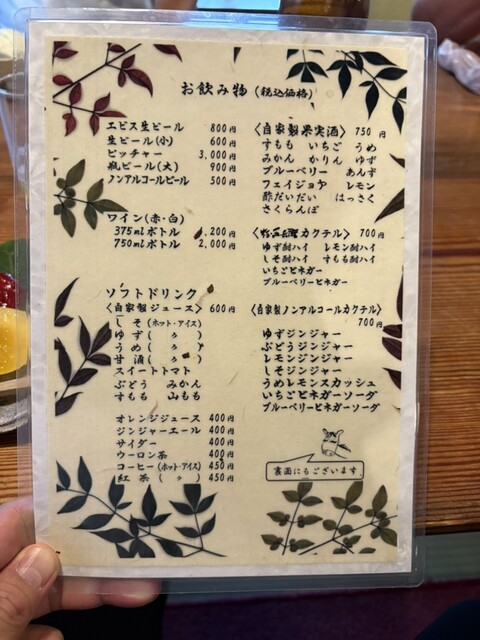 お飲み物(税込価格)
エビス生ビール 800円
生ビール(小) 600円
ピッチャー 3,000円
瓶ビール(大) 900円
ノンアルコールビール 500円
ワイン(赤・白)
375mlボトル ,200円
750mlボトル 2,000円
ソフトドリンク
〈自家製ジュース〉 600円
しそ(ホット・アイス)
ゆず( 〃 )
うめ( 〃 )
甘酒( 〃 )
スイートトマト
ぶどう みかん
すもも 山もも
オレンジジュース 400円
ジンジャーエール 400円
サイダー 400円
ウーロン茶 400円
コーヒー(ホット・アイス) 450円
紅茶( 〃 ) 450円
〈自家製果実酒〉 750円
すもも いちご うめ
みかん かりん ゆず
ブルーベリー あんず
フェイジョヤ レモン
酢だいだい はっさく
さくらんぼ
カクテル〉 700円
ゆず酎ハイ レモン酎ハイ
しそ酎ハイ すもも酎ハイ
いちごビネガー
ブルーベリービネガー
〈自家製ノンアルコールカクテル〉
700円
ゆずジンジャー
ぶどうジンジャー
レモンジンジャー
しそジンジャー
うめレモンスカッシュ
いちごビネガーソーダ
ブルーベリービネガーソーダ
裏面にもございます